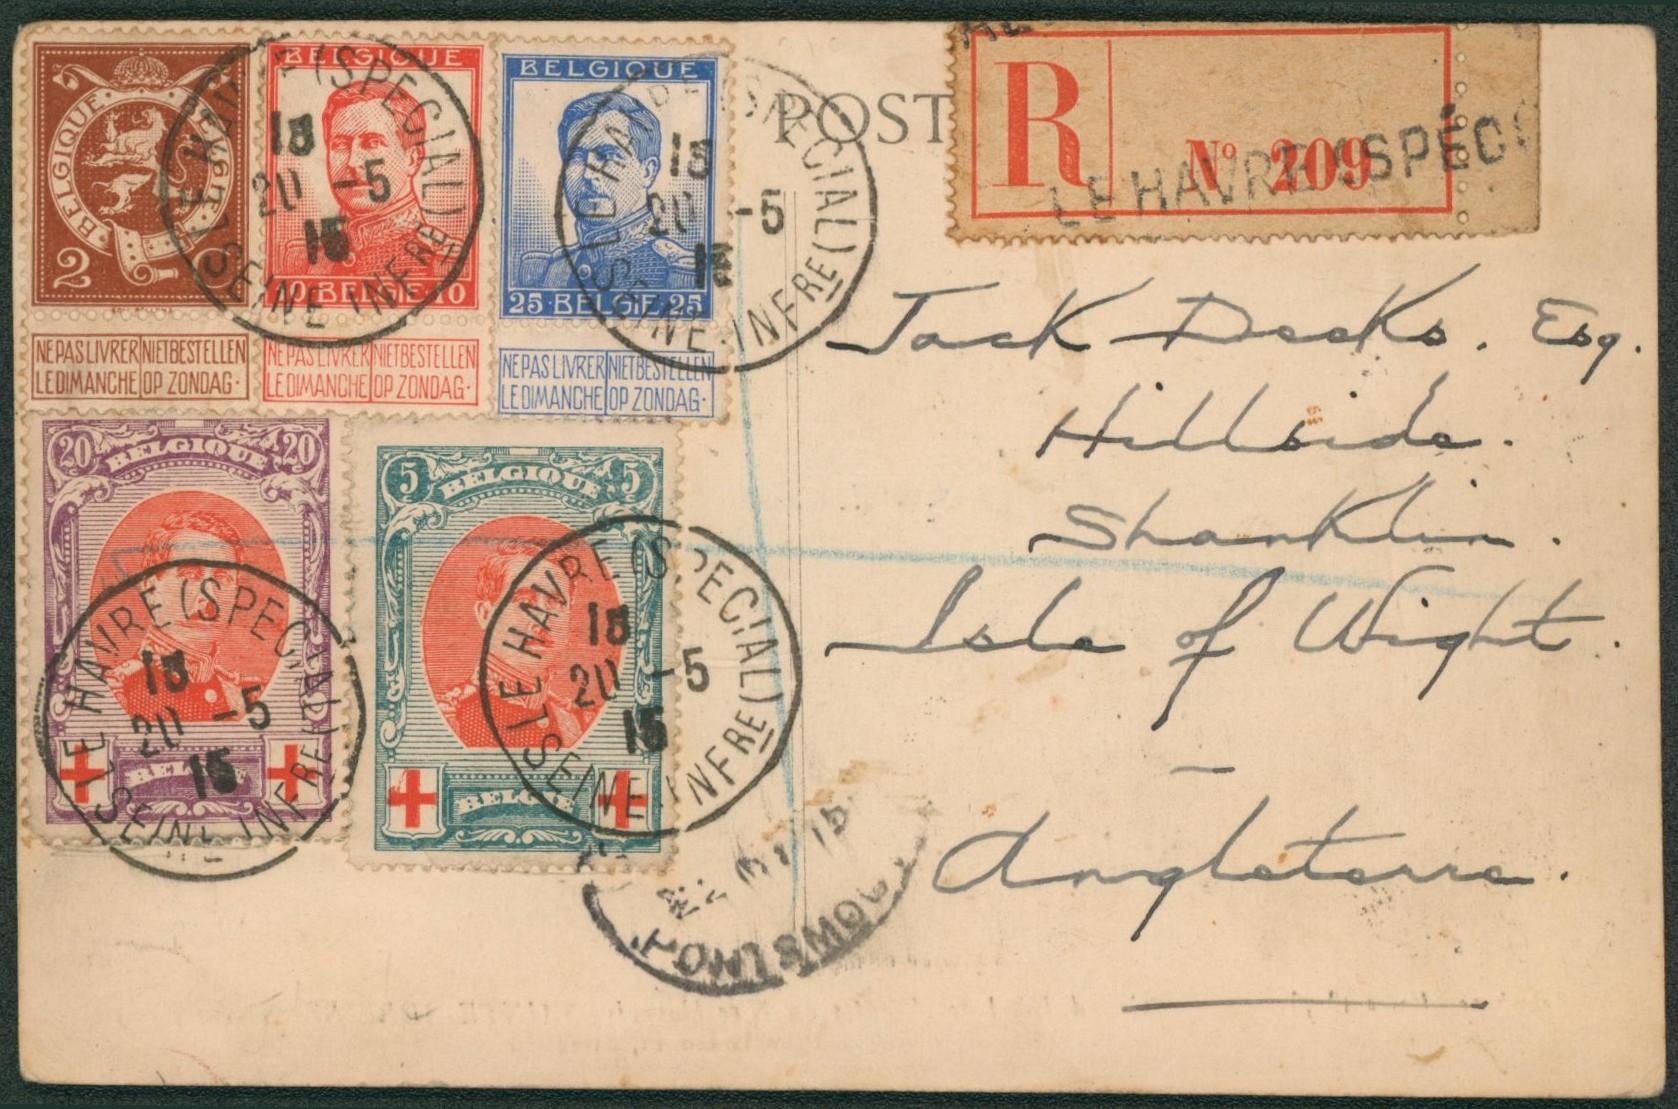 BELGIQUE·BELGIË·
2 2
NE PAS LIVRER NIET BESTELLEN
LE DIMANCHE OP ZONDAG·
BELGIQUE
10·BELGIE·10
NE PAS LIVRER NIET BESTELLEN
LE DIMANCHE OP ZONDAG·
BELGIQUE
25·BELGIE·25
NE PAS LIVRER NIET BESTELLEN
LE DIMANCHE OP ZONDAG·
20 BELGIQUE 20
BELGIE
5 BELGIQUE 5
BELGIE
LE HAVRE (SPECIAL)
20 -5
15
SEINE INFRE
LE HAVRE (SPECIAL)
20 -5
SEINE INFRE
LE HAVRE (SPECIAL)
20 -5
15
SEINE INFRE
LE HAVRE (SPECIAL)
20 -5
15
SEINE INFRE
POST
R No 209
LE HAVRE (SPÉCI
Jack Decks. Esq.
Hillside.
Shanklin.
Isle of Wight.
Angleterre.
15